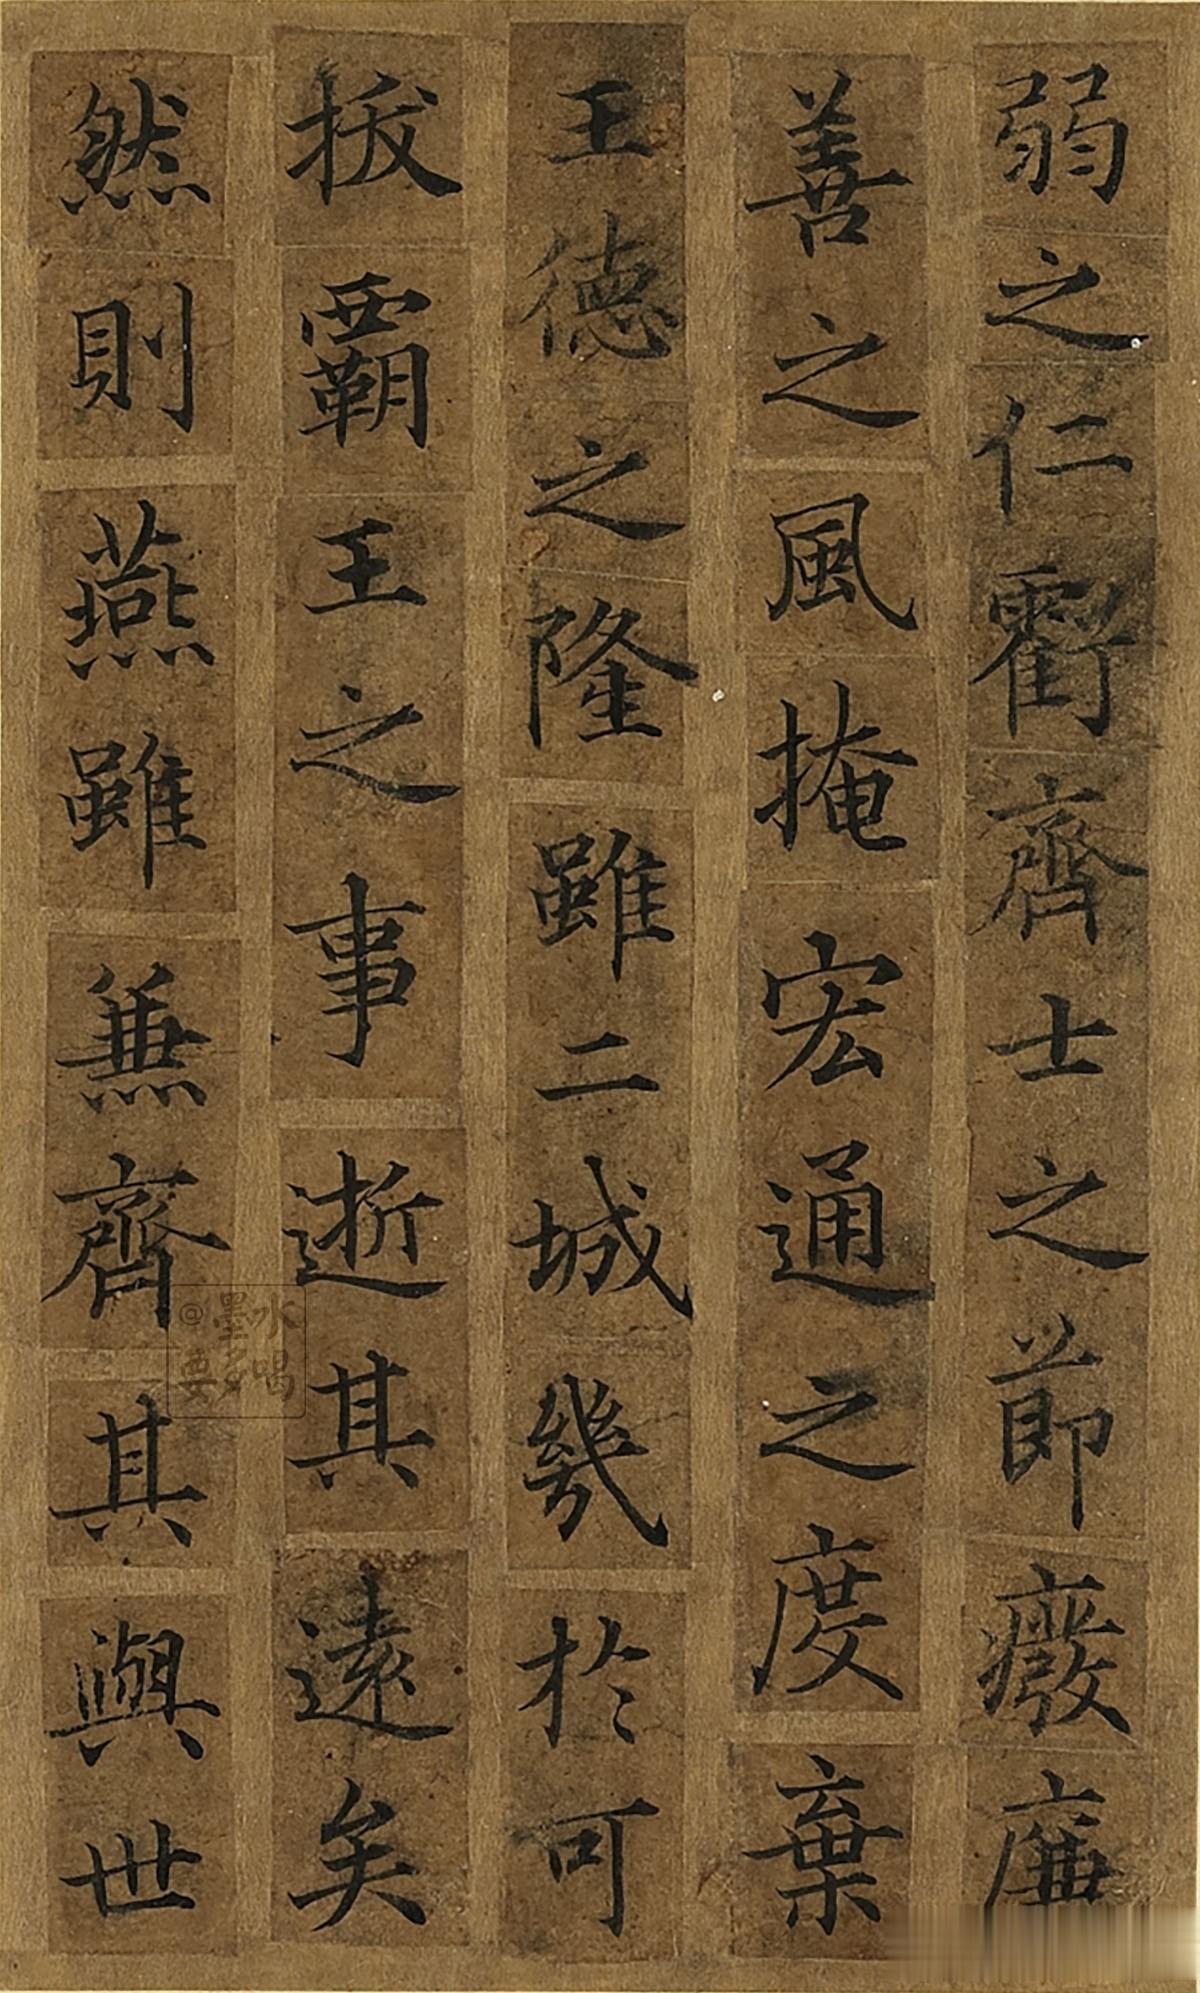 弱之仁虧齊士之節廢廉
善之風掩宏通之度棄
王德之隆雖二城幾於可
拔霸王之事逝其遠矣
然則燕雖兼齊其與世
@墨水要多唱